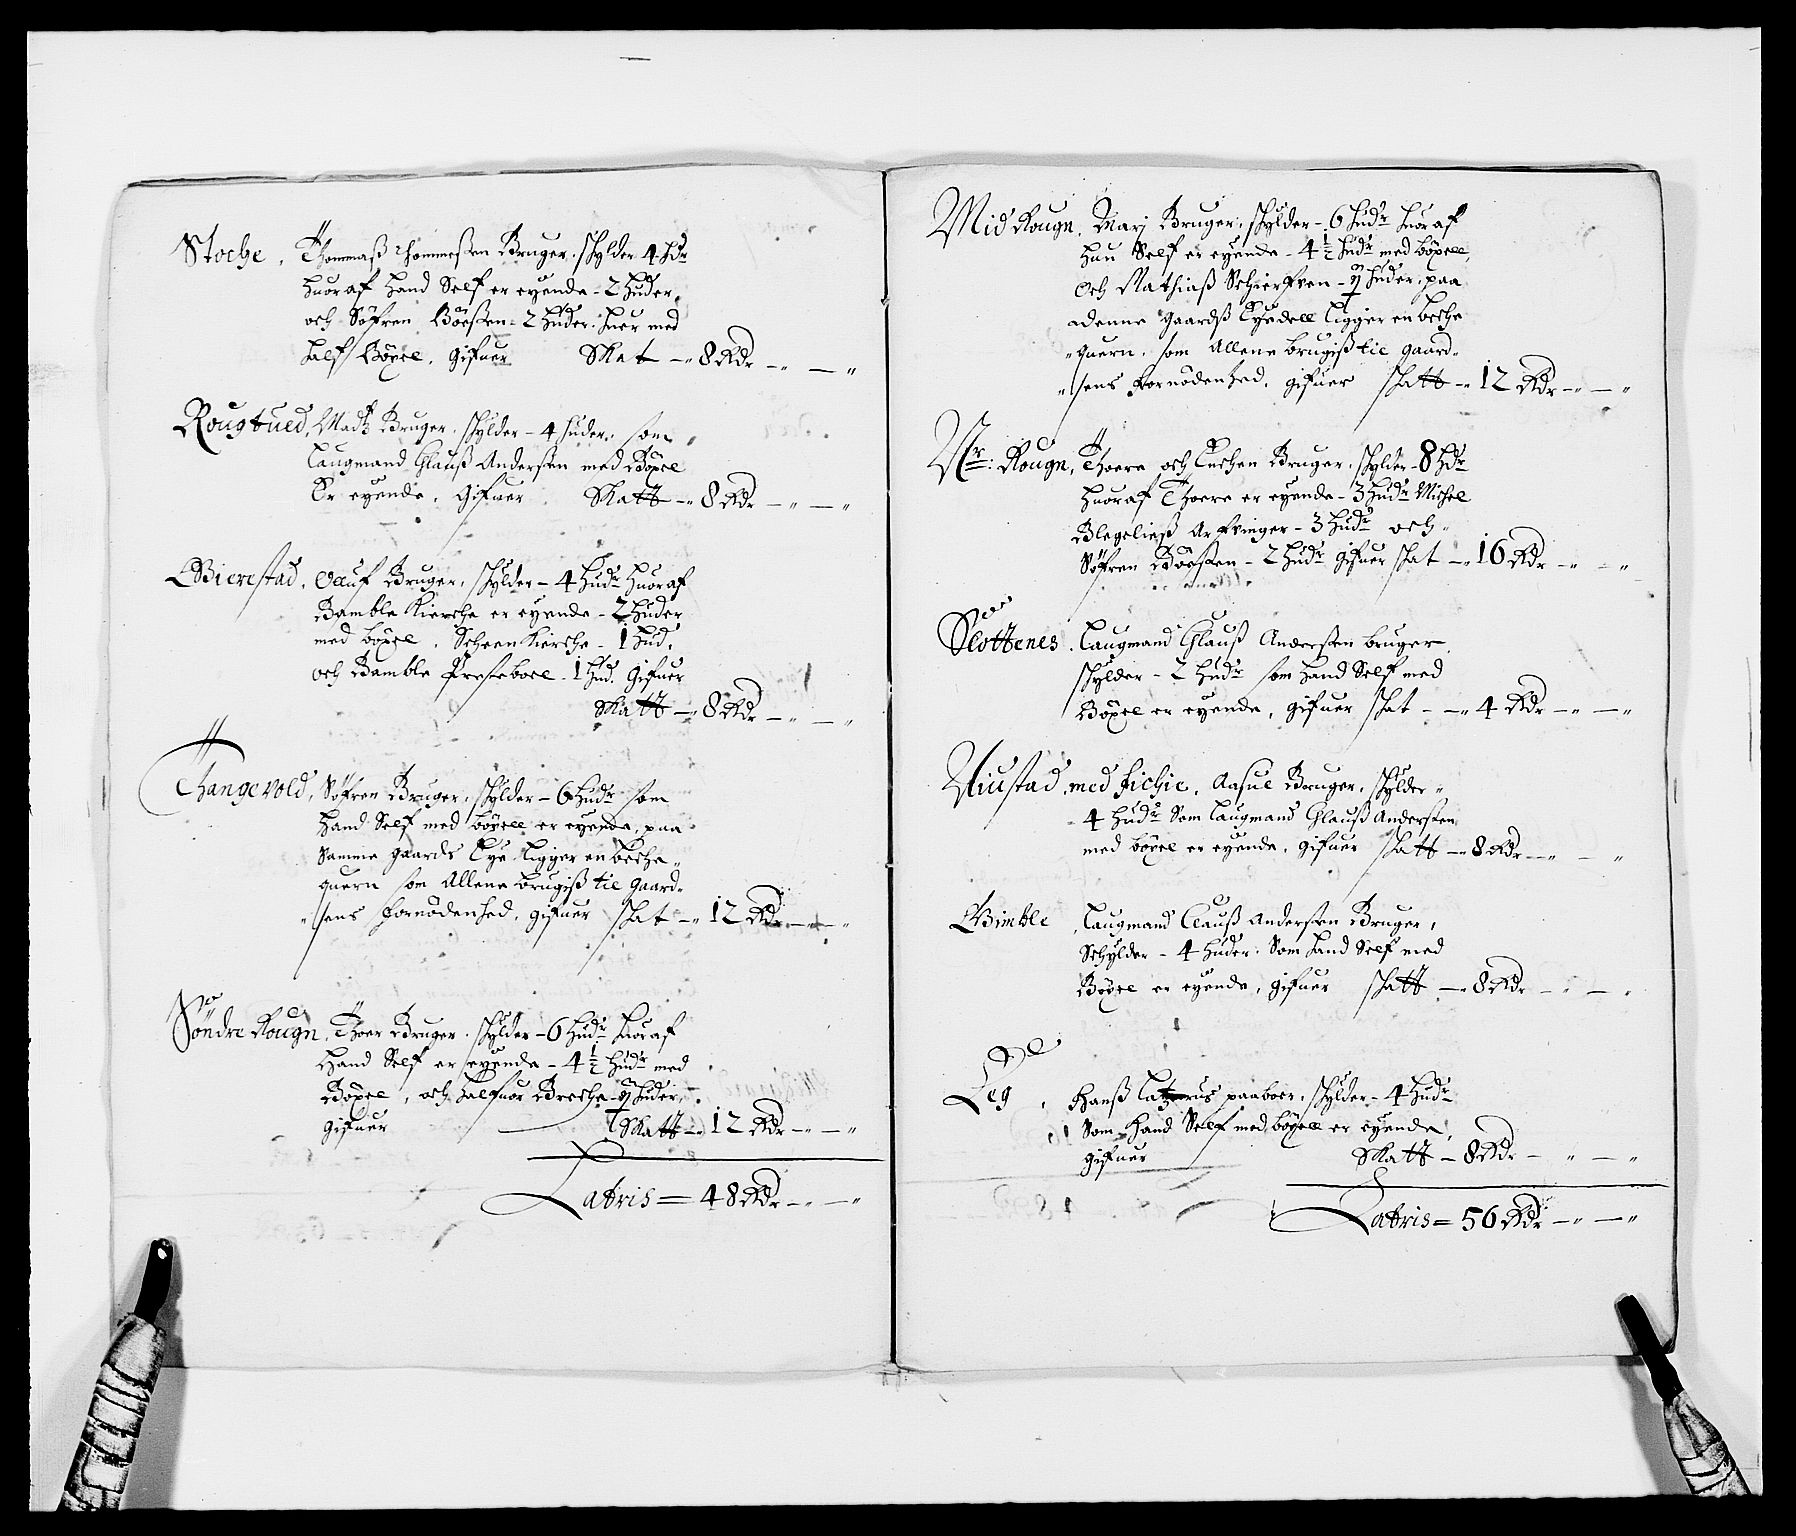 Stoche, Thommaß Thommeßen Bruger, schylder 4 Hdr
huoraf hand Self er eyende - 2 huder,
och Söfren Böeßen - 2 huder huer med
half Böxel, gifuer Skat - 8 Rdr - " - "
Rougtued, Madtz Bruger, schylder - 4 huder, som
Laugmand Clauß Anderßen med Böxel
Er eyende, Gifuer Skatt - 8 Rdr - " - "
Bierestad, Oluf Bruger, schylder - 4 hudr huoraf
Bamble Kierche er eyende - 2 huder
med böxel, Scheen Kierche - 1 hud,
och Bamble Presteboel - 1 hud. Gifuer
Skatt - 8 Rdr - " - "
Thangevold, Söfren Bruger, schylder - 6 hudr som
hand Self med böxell er eyende, paa
Samme gaards Eye ligger en beche-
quern som Allene brugiß til gaard-
sens fornödenhed, gifuer skat - 12 Rdr - " - "
Söndre Rougn, Thoer Bruger, schylder - 6 hudr huoraf
hand Self er eyende - 4 1/2 hudr med
Böxel, och halfuor Breche huder,
gifuer Skatt - 12 Rdr - " - "
Latris = 48 Rdr - " - "
Mid Rougn, Marj Bruger, schylder - 6 hudr huoraf
hun Self er eyende - 4 1/2 hudr med böxell,
Och Mathiaß Schierfven huder, paa
adenne gaardß Eyedell ligger en beche
quern, som Allene brugiß til gaard-
sens fornödenhed, gifuer skatt - 12 Rdr - " - "
Nr: Rougn, Thoere och Luchen Bruger, schylder - 8 hdr
huoraf Thoere er eyende - 3 hudr Michel
Blegeließ Arfvinger - 3 hudr och
Söfren Böeßen - 2 hudr gifuer skat - 16 Rdr - " - "
Slottenes, Laugmand Clauß Anderßen bruger,
schylder - 2 hudr som hand Self med
Böxel er eyende, gifuer skat - 4 Rdr - " - "
Niustad med fichie, Aasue Bruger, schylder
4 hudr Som Laugmand Clauß Anderßen
med böxel er eyende, gifuer skatt - 8 Rdr - " - "
Bimble, Laugmand Clauß Anderßen Bruger,
Schylder - 4 huder, Som hand Self med
Böxel er eyende, gifuer skatt - 8 Rdr - " - "
Leg, Hanß paaboer, schylder - 4 hudr
Som hand Self med böxell er eyende,
gifuer Skatt - 8 Rdr - " - "
Latris = 56 Rdr - " - "